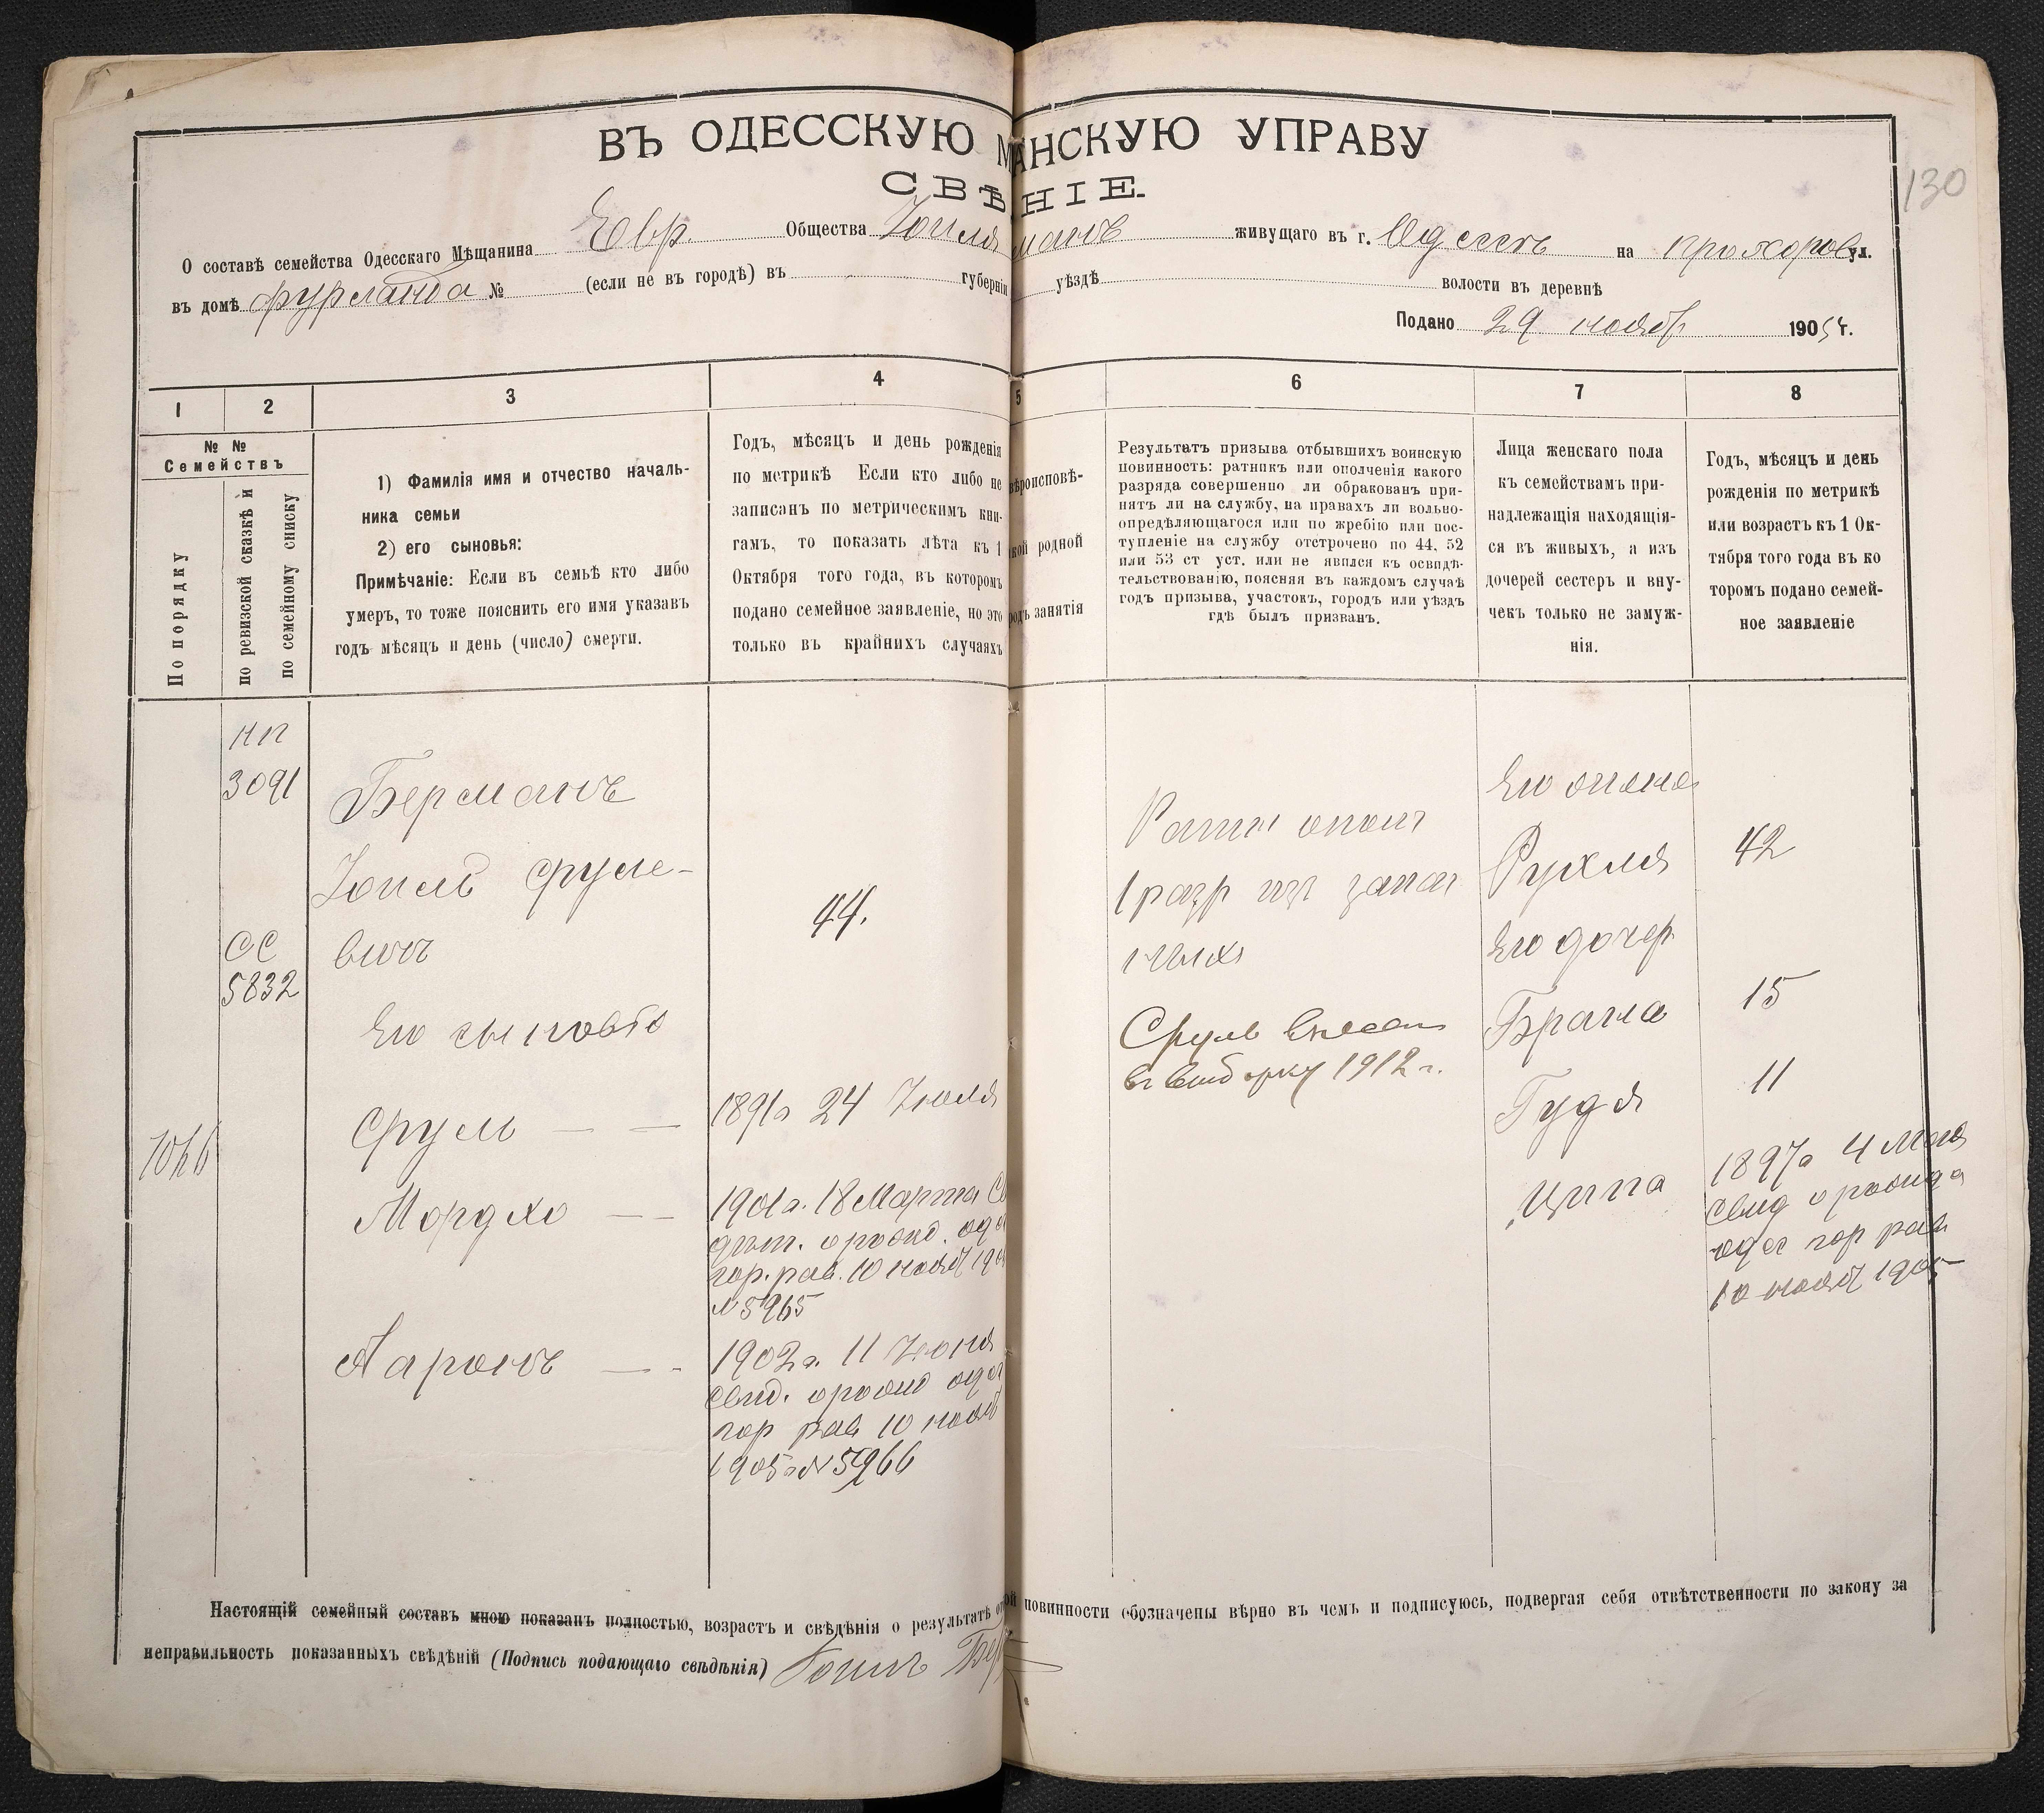 ВЪ ОДЕССКУЮ М АНСКУЮ УПРАВУ
СВѢ НІЕ.
130
О составѣ семейства Одесскаго Мѣщанина Евр. Общества Іоиля манъ живущаго въ г. Одессѣ на Прохоров ул.
въ домѣ Фурмана № (если не въ городѣ) въ губерніи уѣздѣ волости въ деревнѣ
Подано 29 нояб 1905 г.
1 2 3 4 5 6 7 8
№ №
Семействъ
По порядку
по ревизской сказкѣ и
по семейному списку
1) Фамилія имя и отчество началь-
ника семьи
2) его сыновья:
Примѣчаніе: Если въ семьѣ кто либо
умеръ, то тоже пояснить его имя указавъ
годъ мѣсяцъ и день (число) смерти.
Годъ, мѣсяцъ и день рожденія
по метрикѣ Если кто либо не
записанъ по метрическимъ кни-
гамъ, то показать лѣта къ 1
Октября того года, въ которомъ
подано семейное заявленіе, но это
только въ крайнихъ случаяхъ
вѣроисповѣ-
кой родной
родъ занятія
Результатъ призыва отбывшихъ воинскую
повинность: ратникъ или ополченія какого
разряда совершенно ли обракованъ при-
нятъ ли на службу, на правахъ ли вольно-
опредѣляющагося или по жребію или пос-
тупленіе на службу отстрочено по 44, 52
или 53 ст уст. или не явился къ освидѣ-
тельствованію, поясняя въ каждомъ случаѣ
годъ призыва, участокъ, городъ или уѣздъ
гдѣ былъ призванъ.
Лица женскаго пола
къ семействамъ при-
надлежащія находящія-
ся въ живыхъ, а изъ
дочерей сестеръ и вну-
чекъ только не замуж-
нія.
Годъ, мѣсяцъ и день
рожденія по метрикѣ
или возрастъ къ 1 Ок-
тября того года въ ко
торомъ подано семей-
ное заявленіе
НП
3091
СС
5832
Берманъ
Іоиль Сруле-
вичъ
44.
Его сыновья
Сруль — —
1891 г 24 Іюля
Мордхо — —
1901 г. 18 Марта Св
дѣт. о рожд. одес
гор. рав. 10 нояб 190
№ 5965
Ааронъ — -
1902 г. 11 Іюня
свид. о рожд одес
гор рав 10 нояб
1905 г № 5966
Ратн ополч
1 разр из запас
ных
Сруль внесен
въ выборку 1912 г.
Его жена
Рухля 42
Его дочер
Брана 15
Гудя 11
Ципа
1897 г 4 Мая
свид о рожд
одес гор рав
10 нояб 1905
Настоящій семейный составъ мною показанъ полностью, возрастъ и свѣдѣнія о результатѣ от ой повинности обозначены вѣрно въ чемъ и подписуюсь, подвергая себя отвѣтственности по закону за
неправильность показанныхъ свѣдѣній (Подпись подающаго свѣдѣнія) Іоиль Бер